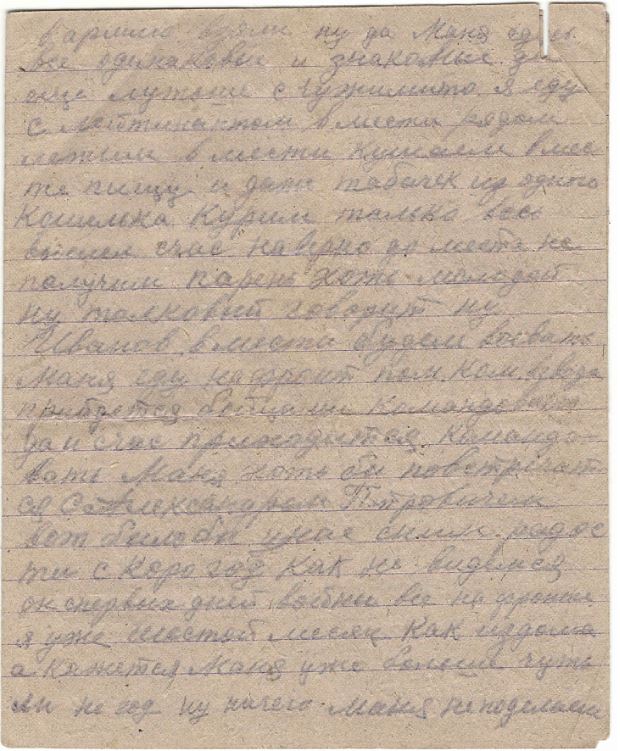 в армию взяли ну да Маня здесь
все одинаковые и знакомые да
още лутьше с чужимито я еду
с лейтинантом вмести рядом
лежим вмести кушаем вмес
те пищу и даже табачек из одного
кошелька курим только весь
вышел счас наверно до места не
получим парень хоть молодой
ну толковый говорит ну
Иванов вмести будем воевать
Маня еду нафронт пом ком взвода
прийдется бойцами командовать
да и счас приходится командо-
вать Маня хоть бы повстречат
ся САлександром Птровичем
вот былобы унас сним радос
ти скоро год как не виделися
он спервых дней войны все на фронте
я уже шостой месяц как издома
а кажется Маня уже больше чуть
ли не год ну ничего Маня неподелаеш